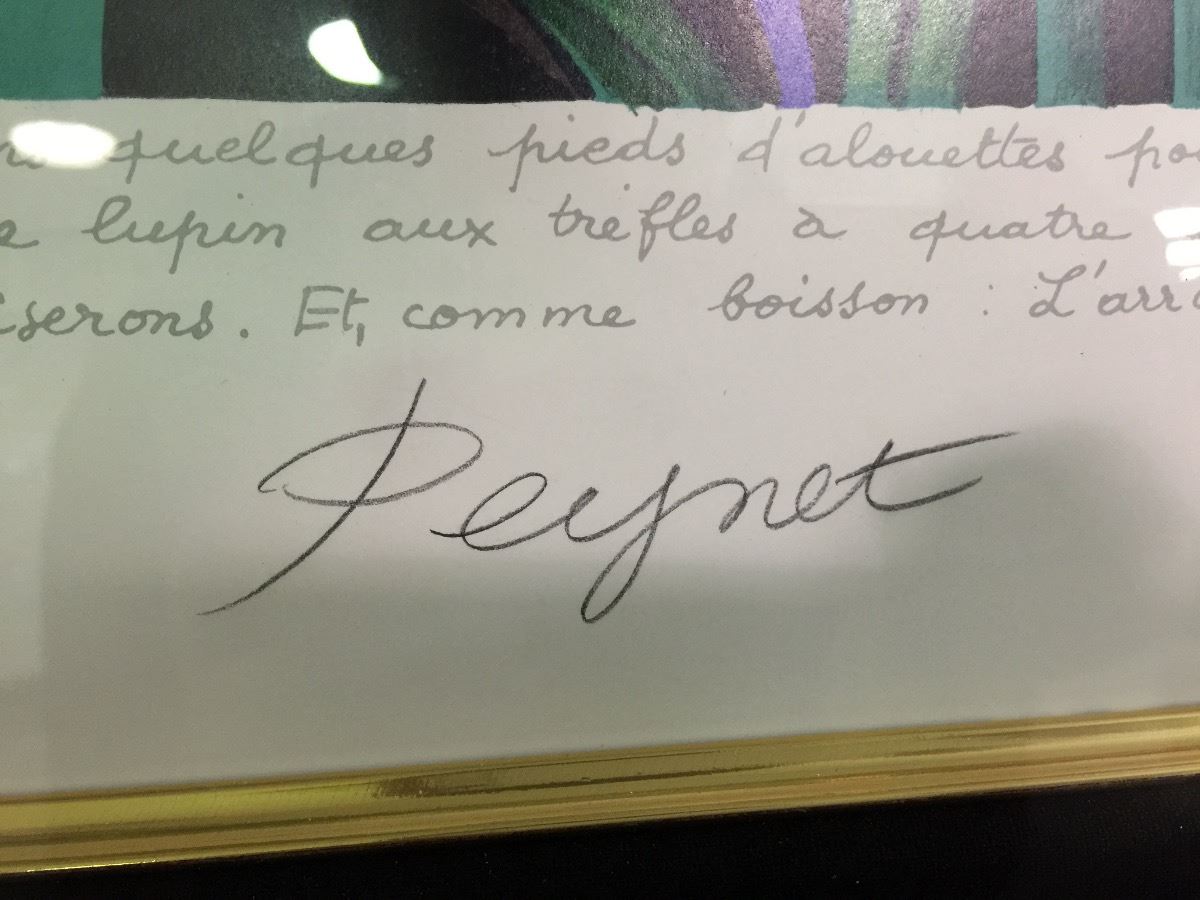 quelques pieds d'alouettes
lupin aux trèfles à quatre
iserons. Et, comme boisson : L'arr
Peynet